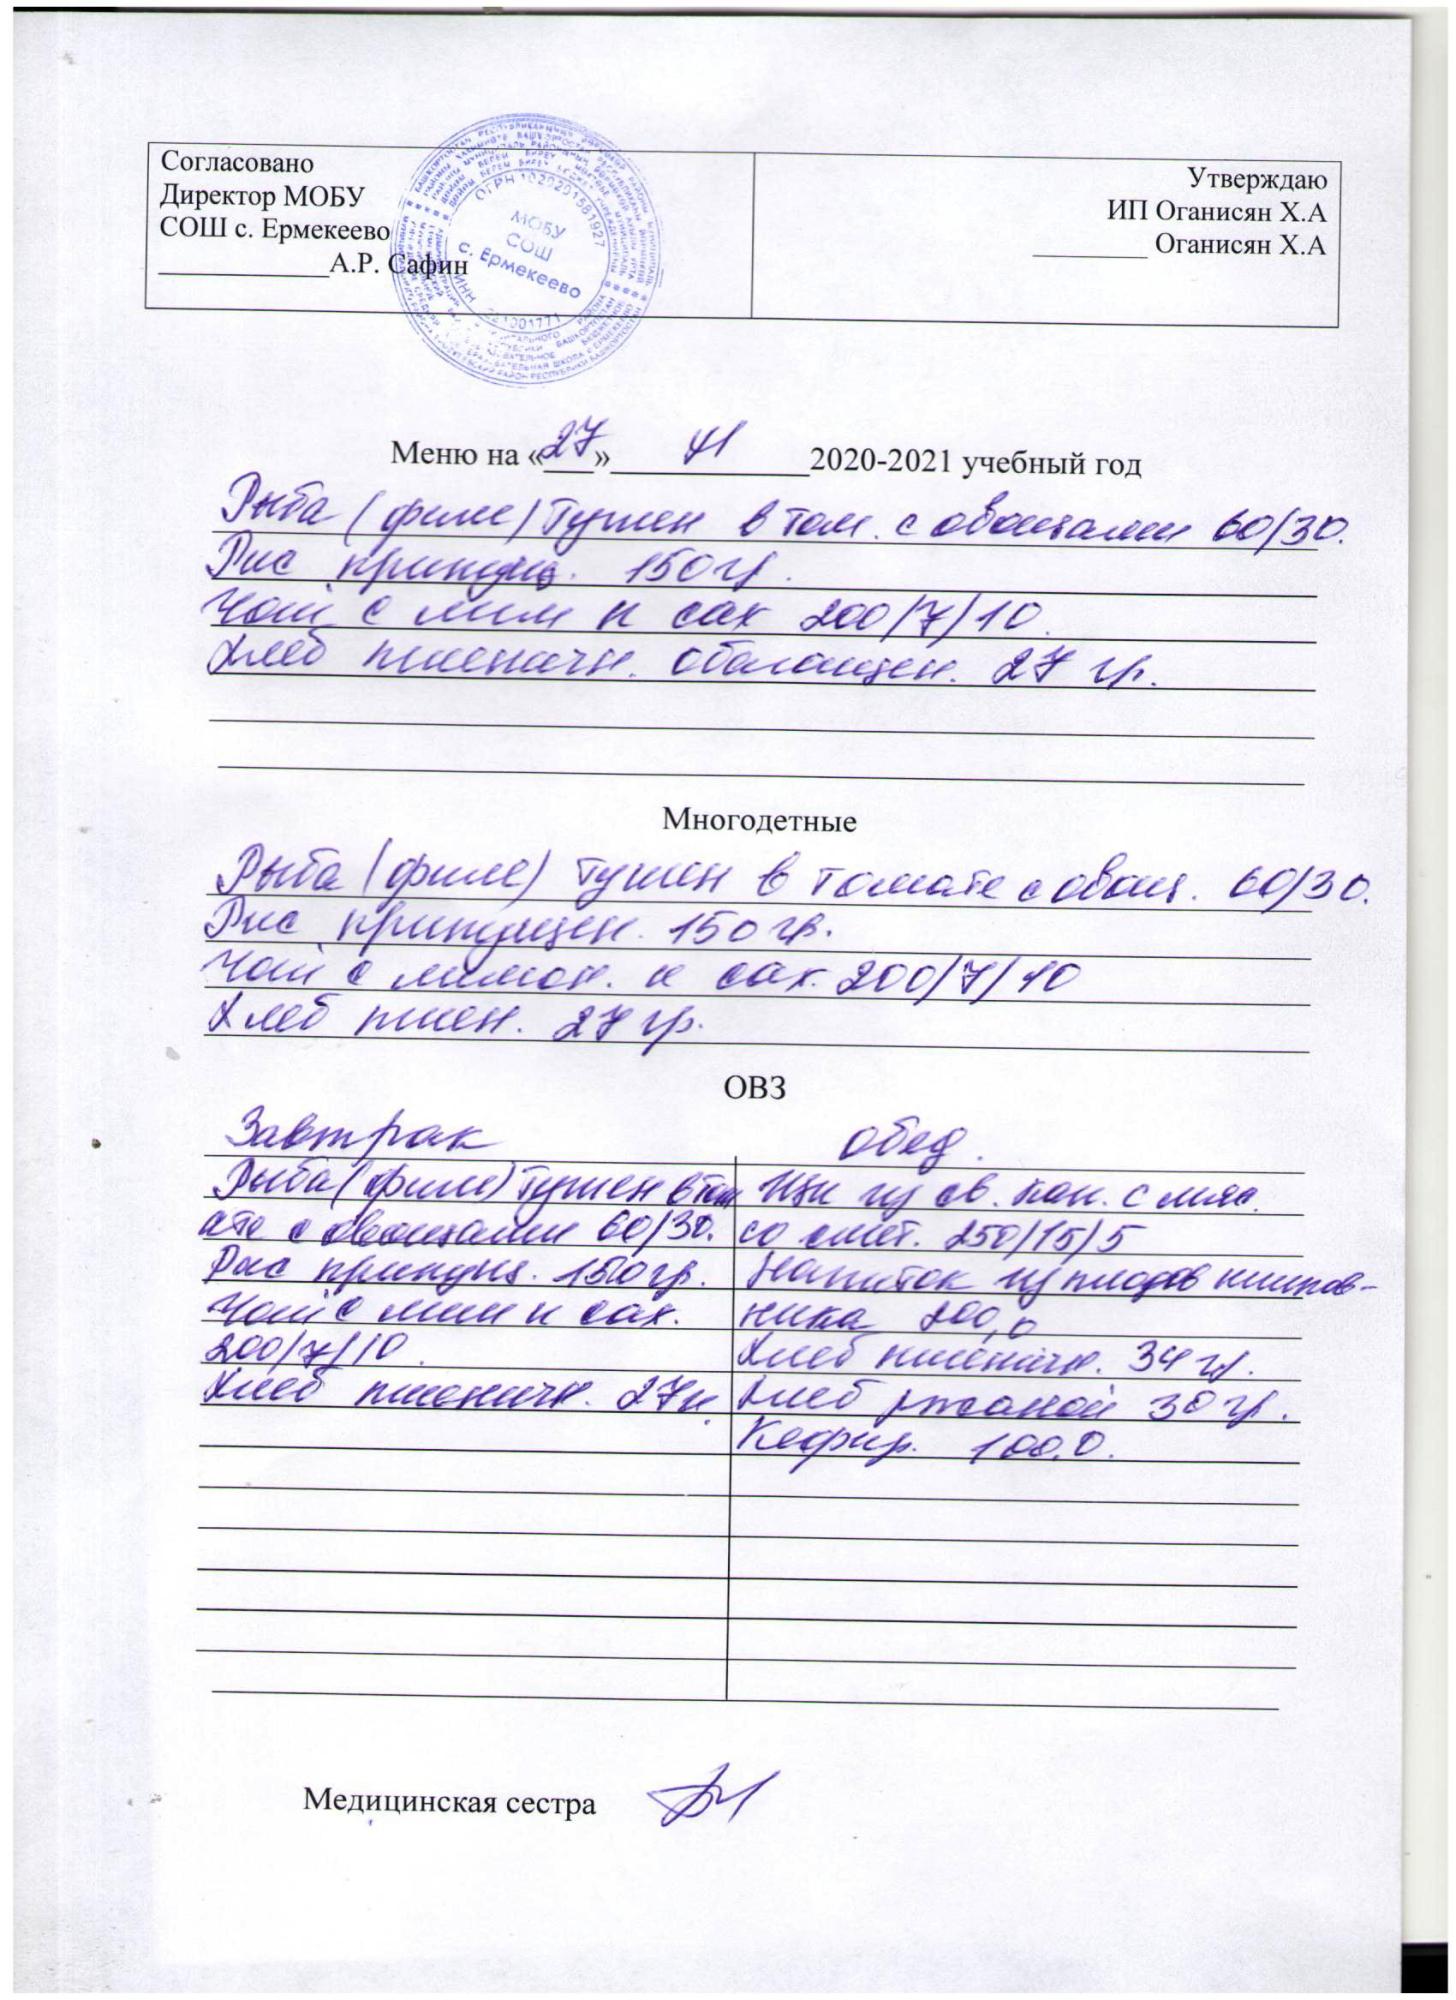 Согласовано
Директор МОБУ
СОШ с. Ермекеево
____________А.Р. Сафин
Утверждаю
ИП Оганисян Х.А
________ Оганисян Х.А
ОГРН 1020201581927
МОБУ
СОШ
с. Ермекеево
ИНН
Меню на «27»____________2020-2021 учебный год
Рыба (филе) тушен в том. с овощами 60/30.
Рис припущ. 150 гр.
Чай с лим и сах 200/7/10.
Хлеб пшеничн. обогащен. 27 гр.
Многодетные
Рыба (филе) тушен в томате с овощ. 60/30.
Рис припущен. 150 гр.
Чай с лимон. и сах. 200/7/10
Хлеб пшен. 27 гр.
ОВЗ
Завтрак
Рыба (филе) тушен в том
ате с овощами 60/30.
Рис припущ. 150 гр.
Чай с лим и сах.
200/7/10.
Хлеб пшеничн. 27
обед.
Щи из св. кап. с мяс.
со смет. 250/15/5
Напиток из плодов шипов-
ника 200,0
Хлеб пшеничн. 34 гр.
Хлеб ржаной 30 гр.
Кефир. 100.0.
Медицинская сестра